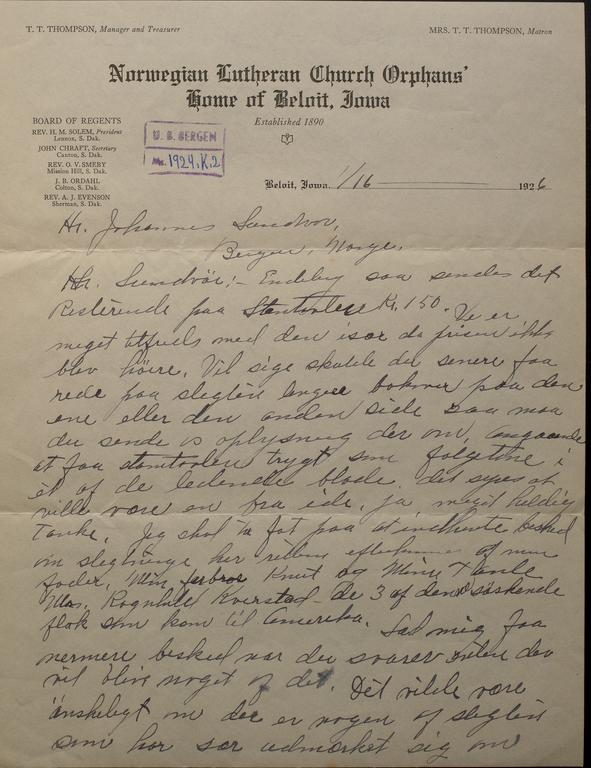 T. T. THOMPSON, Manager and Treasurer
MRS. T. T. THOMPSON, Matron
Norwegian Lutheran Church Orphans'
Home of Beloit, Iowa
Established 1890
BOARD OF REGENTS
REV. H. M. SOLEM, President
Lennox, S. Dak.
JOHN CHRAFT, Secretary
Canton, S. Dak.
REV. O. V. SMEBY
Mission Hill, S. Dak.
J. B. ORDAHL
Colton, S. Dak.
REV. A. J. EVENSON
Sherman, S. Dak.
U. B. BERGEN
Ms. 1924. K. 2
Beloit, Iowa. 1/16 1926
Hr. Johannes Sundvor,
Bergen, Norge.
Hr. Sundvör:- Endelig saa sendes det
Resterende paa Stamtavlene Kr. 150. Vi er
meget tilfreds med den især da prisen ikke
blev höiere. Vil sige skulde du senere faa
rede paa slegten lenger bakover paa den
ene eller den anden side saa maa
du sende os oplysning der om, angaaende
at faa stamtavlen trygt som følgetone i
et af de ledende blade. det synes at
ville være en fra ide, ja meget heldig
Tanke. Jeg skal ta fat paa at indhente besked
om slegtninge her rettens efterkommere af min
Fader, Min farbror Knut og Mine Tante
Mrs. Ragnhild Kverstad - de 3 af den söskende
flok som kom til Amerika. Lad mig faa
nermere besked nar du svarer om der
vil blive noget af det. Det vilde være
önskeligt om der er nogen af slegten
som har sær udmerket sig om